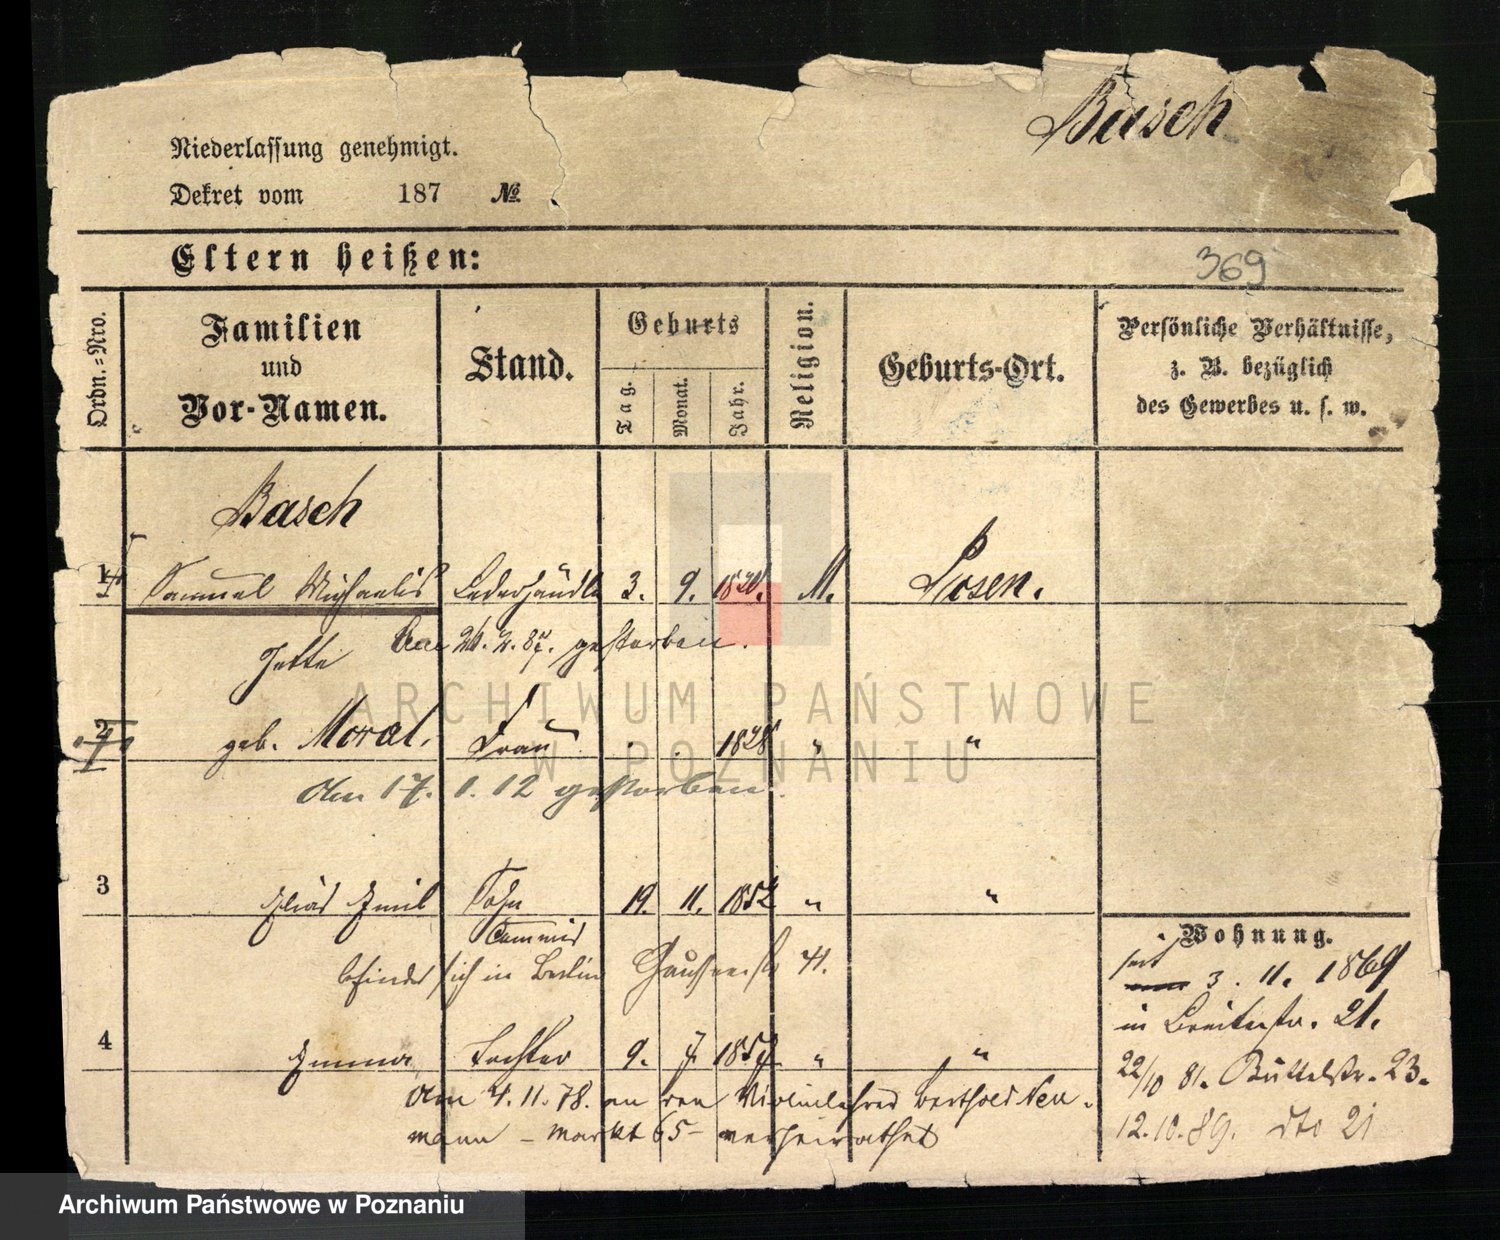 Basch
Niederlassung genehmigt.
Dekret vom 187 №
Eltern heißen:
369
Ordn.-Nro.
Familien
und
Vor-Namen.
Stand.
Geburts
Tag.
Monat.
Jahr.
Religion.
Geburts-Ort.
Persönliche Verhältnisse,
z. B. bezüglich
des Gewerbes u. s. w.
Basch
1 Samuel Michaelis Lederhändler 3. 9. M. Posen.
gestorben.
Jette
2 geb. Moral. Frau 1828 " "
Am 17. 1. 12 gestorben.
3 Elias Emil Sohn 19. 11. 1852 " "
Commis
befindet sich in Berlin 41.
4 Emma Tochter 9. 7. 1857 " "
Am 4. 11. 78. an den Violinlehrer Berthold Neu-
mann - Markt 65 - verheirathet
Wohnung.
seit 3. 11. 1869
in Breitestr. 21.
22/10 81. Büttelstr. 23.
12.10.89. dto 21
ARCHIWUM PAŃSTWOWE
W POZNANIU
Archiwum Państwowe w Poznaniu